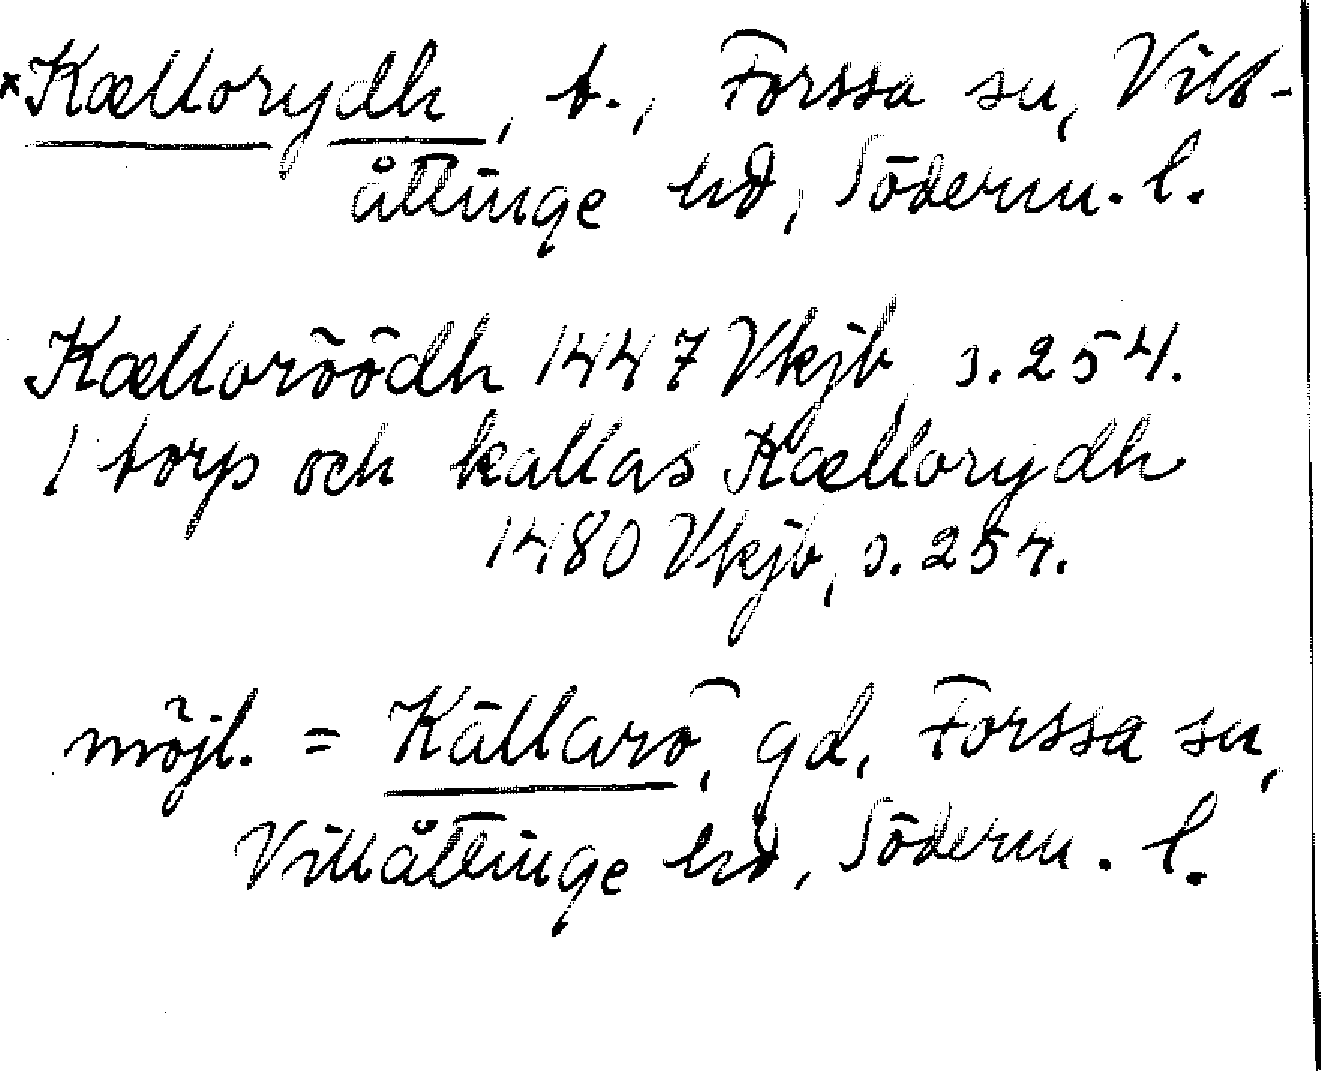 ×Kællorydh, t., Forssa sn, Vill-
åttinge hd, Söderm. l.
Kælloröödh 1447 Vkjb, s. 254.
1 torp och kallas Kællorydh
1480 Vkjb, s. 254.
möjl. = Källarö, gd, Forssa sn,
Villåttinge hd, Söderm. l.